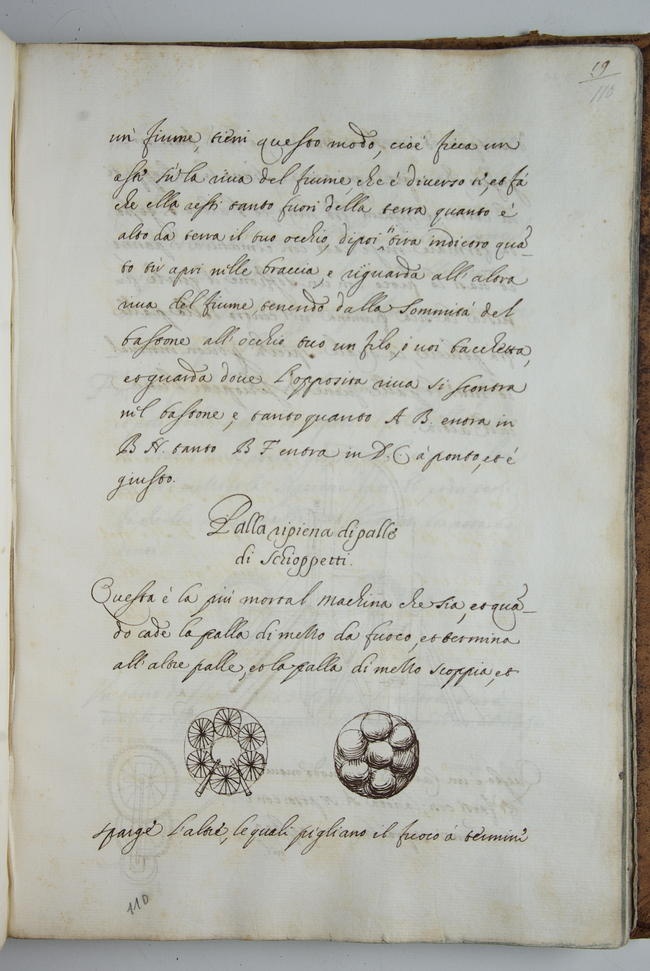 19
110
un fiume, tieni questo modo, cioé ficca un
asti sù la riva del fiume che é diverso ti, et fá
che ella resti tanto fuori della terra quanto é
alto da terra il tuo occhio, dipoi tira indietro quā-
to tù apri nelle braccia, e riguarda all' altra
riva del fiume, tenendo dalla Sommitá del
bastone all' occhio tuo un filo, ò voi bacchetta,
et guarda dove l'opposita riva si scontra
nel bastone e, tanto quanto A B. entra in
B N. tanto B F entra in D. C á ponto, et é
giusto.
Palla ripiena di palle
di Schioppetti.
Questa é la piú mortal machina che sia, et quā-
do cade la palla di mezzo da fuoco, et termina
all' altre palle, et la palla di mezzo scoppia, et
sparge l'altre, le quali pigliano il fuoco á termini
110